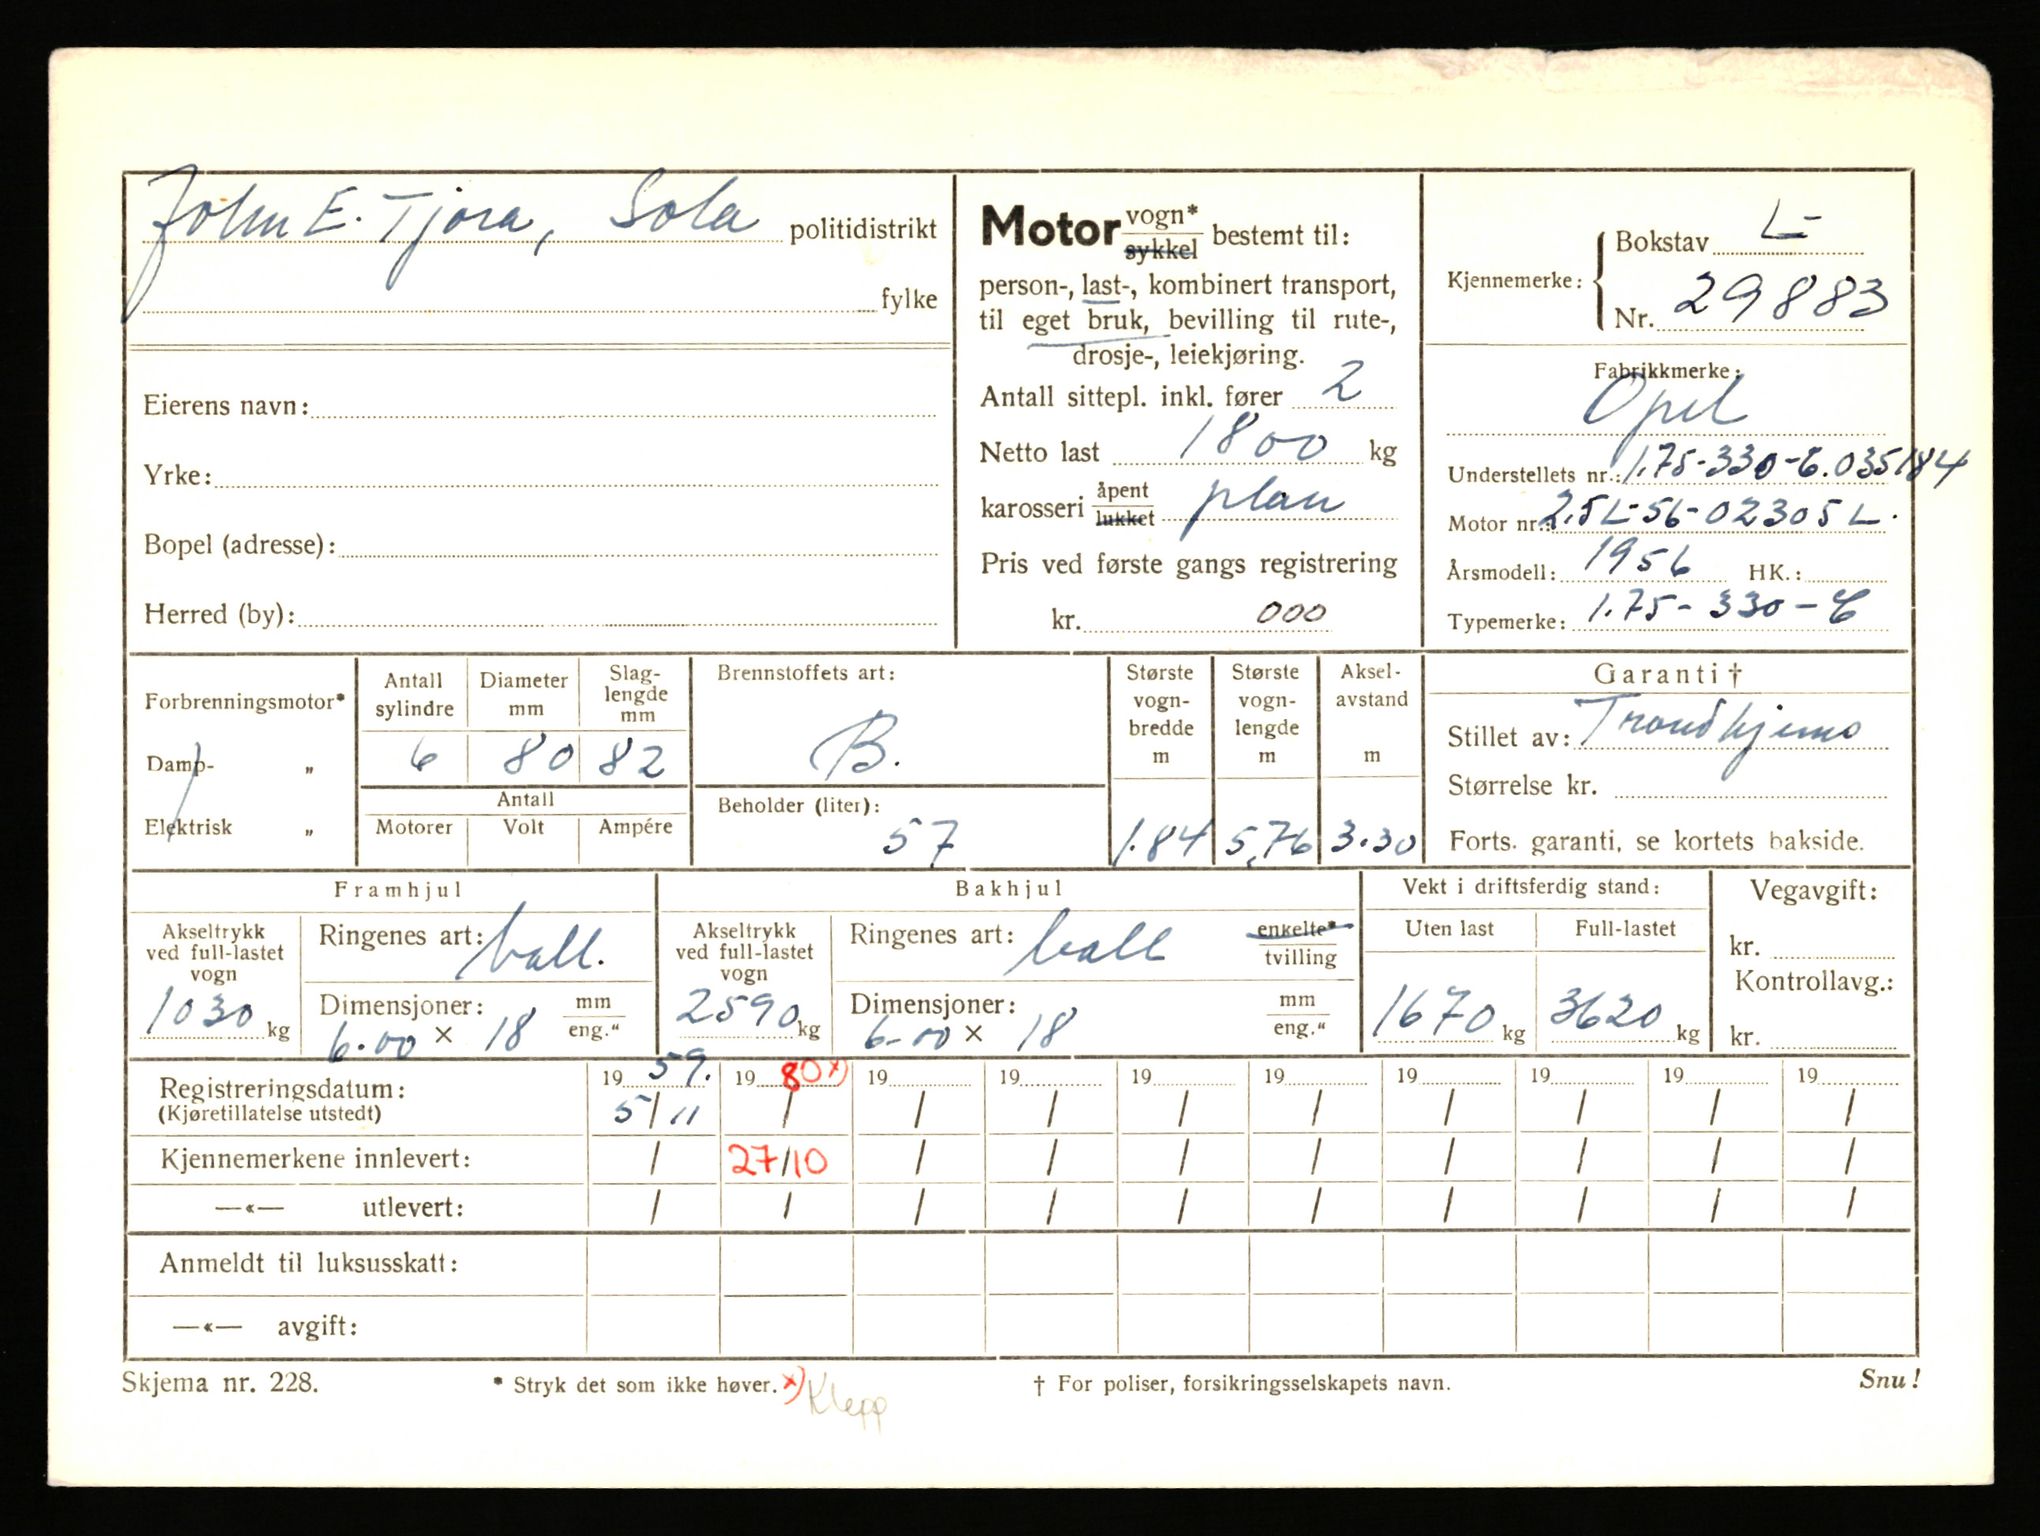 John E. Tjora, Sola politidistrikt
fylke
Eierens navn:
Yrke:
Bopel (adresse):
Herred (by):
Motor vogn* sykkel bestemt til:
person-, last-, kombinert transport,
til eget bruk, bevilling til rute-,
drosje-, leiekjøring.
Antall sittepl. inkl. fører 2
Netto last 1800 kg
karosseri åpent lukket plan
Pris ved første gangs registrering
kr. 000
Kjennemerke: Bokstav L-
Nr. 29883
Fabrikkmerke:
Opel
Understellets nr.: 1.75-330-6.035184
Motor nr.: 2.5L-56-02305L.
Årsmodell: 1956 HK.:
Typemerke: 1.75-330-6
Forbrenningsmotor*
Damp- „
Elektrisk „
Antall sylindre Diameter mm Slag-lengde mm
6 80 82
Antall
Motorer Volt Ampére
Brennstoffets art:
B.
Beholder (liter):
57
Største vogn-bredde m
1.84
Største vogn-lengde m
5,76
Aksel-avstand m
3.30
Garanti †
Stillet av: Trondhjems
Størrelse kr.
Forts. garanti, se kortets bakside.
Framhjul
Akseltrykk ved full-lastet vogn
1030 kg
Ringenes art: ball.
Dimensjoner: mm eng."
6.00 × 18
Bakhjul
Akseltrykk ved full-lastet vogn
2590 kg
Ringenes art: ball enkelte* tvilling
Dimensjoner: mm eng."
6-00 × 18
Vekt i driftsferdig stand:
Uten last Full-lastet
1670 kg 3620 kg
Vegavgift:
kr.
Kontrollavg.:
kr.
Registreringsdatum: 19 59. 19 80 x) 19 19 19 19 19 19 19 19
(Kjøretillatelse utstedt) 5/11 / / / / / / / / /
Kjennemerkene innlevert: / 27/10 / / / / / / / /
—«— utlevert: / / / / / / / / / /
Anmeldt til luksusskatt:
—«— avgift:
Skjema nr. 228. * Stryk det som ikke høver. x) Klepp † For poliser, forsikringsselskapets navn. Snu!